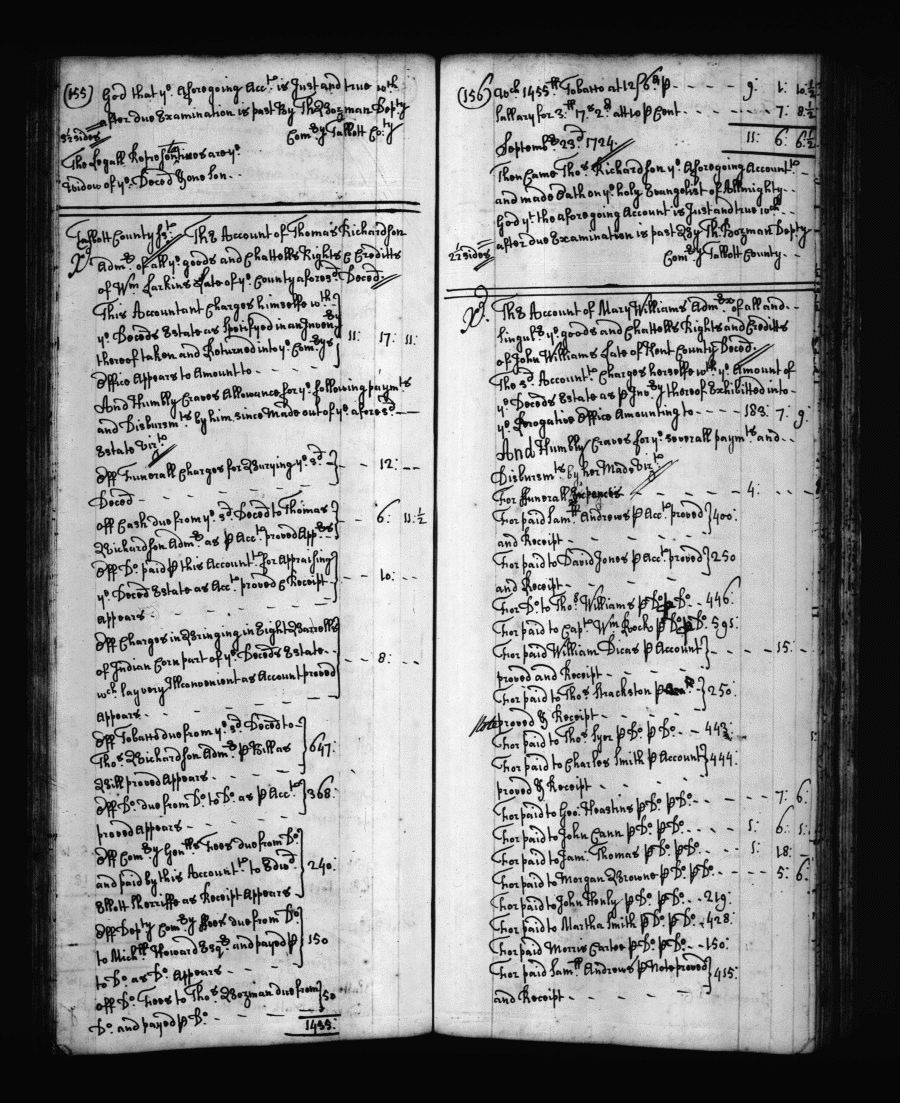 (155) God that ye. aforegoing Acct. is Just and true wch
after due Examination is past By Th: Bozman Depty
3½ sides
Comsy Talbott Coty
The Legall Representatives are ye.
widow of ye. Deced & one Son.
Talbott County sst. The Account of Thomas Richardson
Xd. Admr. of all ye. goods and Chattells Rights & Creditts
of Wm Larkins Late of ye. County aforesd. Deced.
This Accountant Charges himselfe wth
ye. Deceds Estate as Spetifyed in an Inventy
thereof taken and Returned into ye. Comsys 11: 17: 11:
Office Appears to Amount to - - - -
And Humbly Craves Allowance for ye. following paymts
and Disbursmts. by him since Made out of ye. aforesd.
Estate vizt.
Off Funerall Charges for Burying ye. sd. - - 12: - -
Deced - - - - -
off Cash due from ye. sd. Deced to Thomas - 6: 11: ½
Richardson Admr. as P Acct. proved Appears
Off Do. paid P this Accountt. for Appraising
ye. Deceds Estate as Acct. proved & Receipt - - 10: - -
appears - - - - -
Off Charges in Bringing in Eight Barrells
of Indian Corn part of ye. Deceds Estate - - 8: - -
wch. lay very Ill convenient as Account proved
Appears - - - - -
Off Tobatto due from ye. sd. Deced to
Thos. Richardson Admr. P Bill as 647:
Bill proved Appears - - -
Off Do. due from Do. to Do. as P Acct. 368:
proved Appears - - - -
Off Comsy Genlls Fees due from Do.
and paid by this Accountt. to Edwd. 240:
Ellott Sherriffe as Receipt Appears
Off Depty Comsy Fees due from Do.
to Michll Howard Esqr. and payed P 150
to Do. as Do. Appears - - -
off Do. Fees to Thos. Bozman due from 50
Do. and payed P Do. - - - -
1455:
(156) Wch 1455lb Tobatto at 12/6d P - - - 9: 1: 10½
Sallary for 3lb 17s 2d. att 10 P Cent - - - 7: 8½
11: 6: 6½
Septembr 23d. 1724.
Then Came Thos. Richardson ye. Aforegoing Accountt.
and made Oath on ye. holy Evangelist of Allmighty
God yt. the aforegoing Account is Just and true wch
2½ sides after due Examination is past By Th: Bozman Depty
Comsy Talbott County
Xd. The Account of Mary Williams Admrx of all and
singulr. ye. goods and Chattells Rights and Creditts
of John Williams Late of Kent County Deced.
The sd. Accountt. Charges herselfe wth ye. Amount of
ye. Deceds Estate as P Invy. thereof Exhibitted into
ye. Prerogative Office Amounting to - - - 183: 7: 9:
And Humbly Craves for ye. severall paymts and
Disbursmts by her Made vizt.
For Funerall Expences - - - 4: - -
For paid Samll Andrews P Acct. proved 400:
and Receipt - - - -
For paid to David Jones P Acct. proved 250
and Receipt - - - -
For Do. to Thos. Williams P Do. P Do. - 446:
For paid to Capt. Wm Rock P Do. P Do. 591:
For paid William Dicas P Account - - - 15: - -
proved and Receipt - - -
For paid to Thos. Hackston P 250:
Note proved & Receipt - - -
For paid to Thos. Tyer P Do. P Do. - - 443:
For paid to Charles Smith P Account 444:
proved & Receipt - - -
For paid to Geo: P Do. P Do. - - - 7: 6:
For paid to John Cann P Do. P Do. - - 1: 6: 1:
For paid to Jam: Thomas P Do. P Do. - - 1: 18:
For paid to Morgan Browne P Do. P Do. - - 5: 6:
For paid to John Honly P Do. P Do. - 219:
For paid to Martha Smith P Do. P Do. - 428:
For paid Morris Carter P Do. P Do. - 150:
For paid Samll Andrews P Note proved 415:
and Receipt - - - -